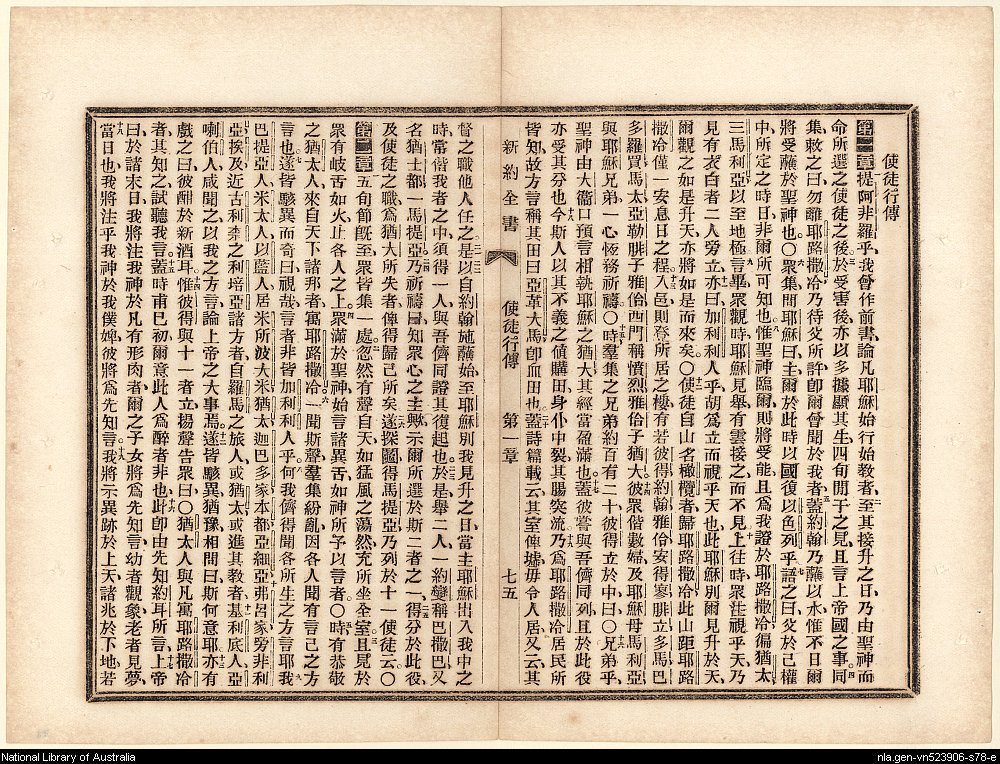 使徒行傳
第一章提阿非羅乎、我曾作前書、論凡耶穌始行始教者、至其接升之日、乃由聖神而
命所選之使徒之後、於受害後、亦以多據顯其生、四旬閒、予之見、且言上帝國之事、同
集、救之曰、勿離耶路撒冷、乃待父所許、卽爾曾聞於我者、蓋約翰乃蘸以水、惟不日爾
將受蘸於聖神也、〇眾集問耶穌曰、主爾於此時、以國復以色列乎、語之曰、父於己權
中所定之時日、非爾所可知也、惟聖神臨爾、則將受能、且爲我證、於耶路撒冷、徧猶太
三馬利亞、以至地極、言畢、眾觀時、耶穌見舉、有雲接之而不見、上往時、眾注視乎天、乃
見有衣白者二人旁立、亦曰、加利利人乎、胡爲立而視乎天也、此耶穌別爾見升於天、
爾觀之如是升天、亦將如是而來矣、〇使徒自山名橄欖者、歸耶路撒冷、此山距耶路
撒冷僅一安息日之程、入邑則登所居之樓、有若彼得約翰雅各安得烈腓立多馬巴
多羅買馬太亞勒腓子雅各西門稱憤烈雅各子猶大、彼眾偕數婦、及耶穌母馬利亞
與耶穌兄弟、一心恆務祈禱、〇時羣集之兄弟、約百有二十、彼得立於中曰、〇兄弟乎、
聖神由大衞口預言、相執耶穌之猶大、其經當盈滿也、蓋彼嘗與吾儕同列、且於此役
亦受其分也、今斯人以其不義之値購田、身仆中裂、其腸突流、乃爲耶路撒冷居民所
皆知、故方言稱其田曰亞革大馬、卽血田也、蓋詩篇載云、其室俾墟、毋令人居、又云、其
新約全書
使徒行傳
第一章
七五
督之職、他人任之、是以自約翰施蘸始、至耶穌別我見升之日、當主耶穌出入我中之
時、常偕我者之中、須得一人、與吾儕同證其復起也、於是舉二人、一約瑟稱巴撒巴、又
名猶士都、一馬提亞、乃祈禱曰、知眾心之主歟、示爾所選於斯二者之一、得分於此役、
及使徒之職、爲猶大所失者、俾得歸己所矣、遂探鬮得馬提亞、乃列於十一使徒云、〇
第二章五旬節旣至、眾皆集一處、忽然有聲自天、如猛風之蕩然、充所坐全室、且見於
眾有岐舌如火、止各人之上、眾滿於聖神、始言諸異舌、如神所予以言者、〇時有恭敬
之猶太人、來自天下諸邦者、寓耶路撒冷、一聞斯聲、羣集紛亂、因各人聞有言己之方
言也、遂皆駭異而奇曰、視哉、言者非皆加利利人乎、何我儕得聞各所生之方言耶、我
巴提亞人、米太人、以藍人、居米所波大米、猶太、迦巴多家、本都、亞細亞、弗呂家、旁非利
亞、挨及、近古利奈之利培亞諸方者、自羅馬之旅人、或猶太或進其教者、基利底人、亞
喇伯人、咸聞之以我之方言、論上帝之大事焉、遂皆駭異猶豫、相問曰、斯何意耶、亦有
戲之曰、彼酣於新酒耳、惟彼得與十一者立、揚聲告眾曰、〇猶太人與凡寓耶路撒冷
者、其知之、試聽我言、蓋時甫巳初、爾意此人爲醉者非也、此卽由先知約耳所言、上帝
曰、於諸末日、我將注我神於凡有形肉者、爾之子女將爲先知言、幼者觀象、老者見夢、
當日也、我將注乎我神於我僕婢、彼將爲先知言、我將示異跡於上天、諸兆於下地、若
National Library of Australia
nla.gen-vn523906-s78-e